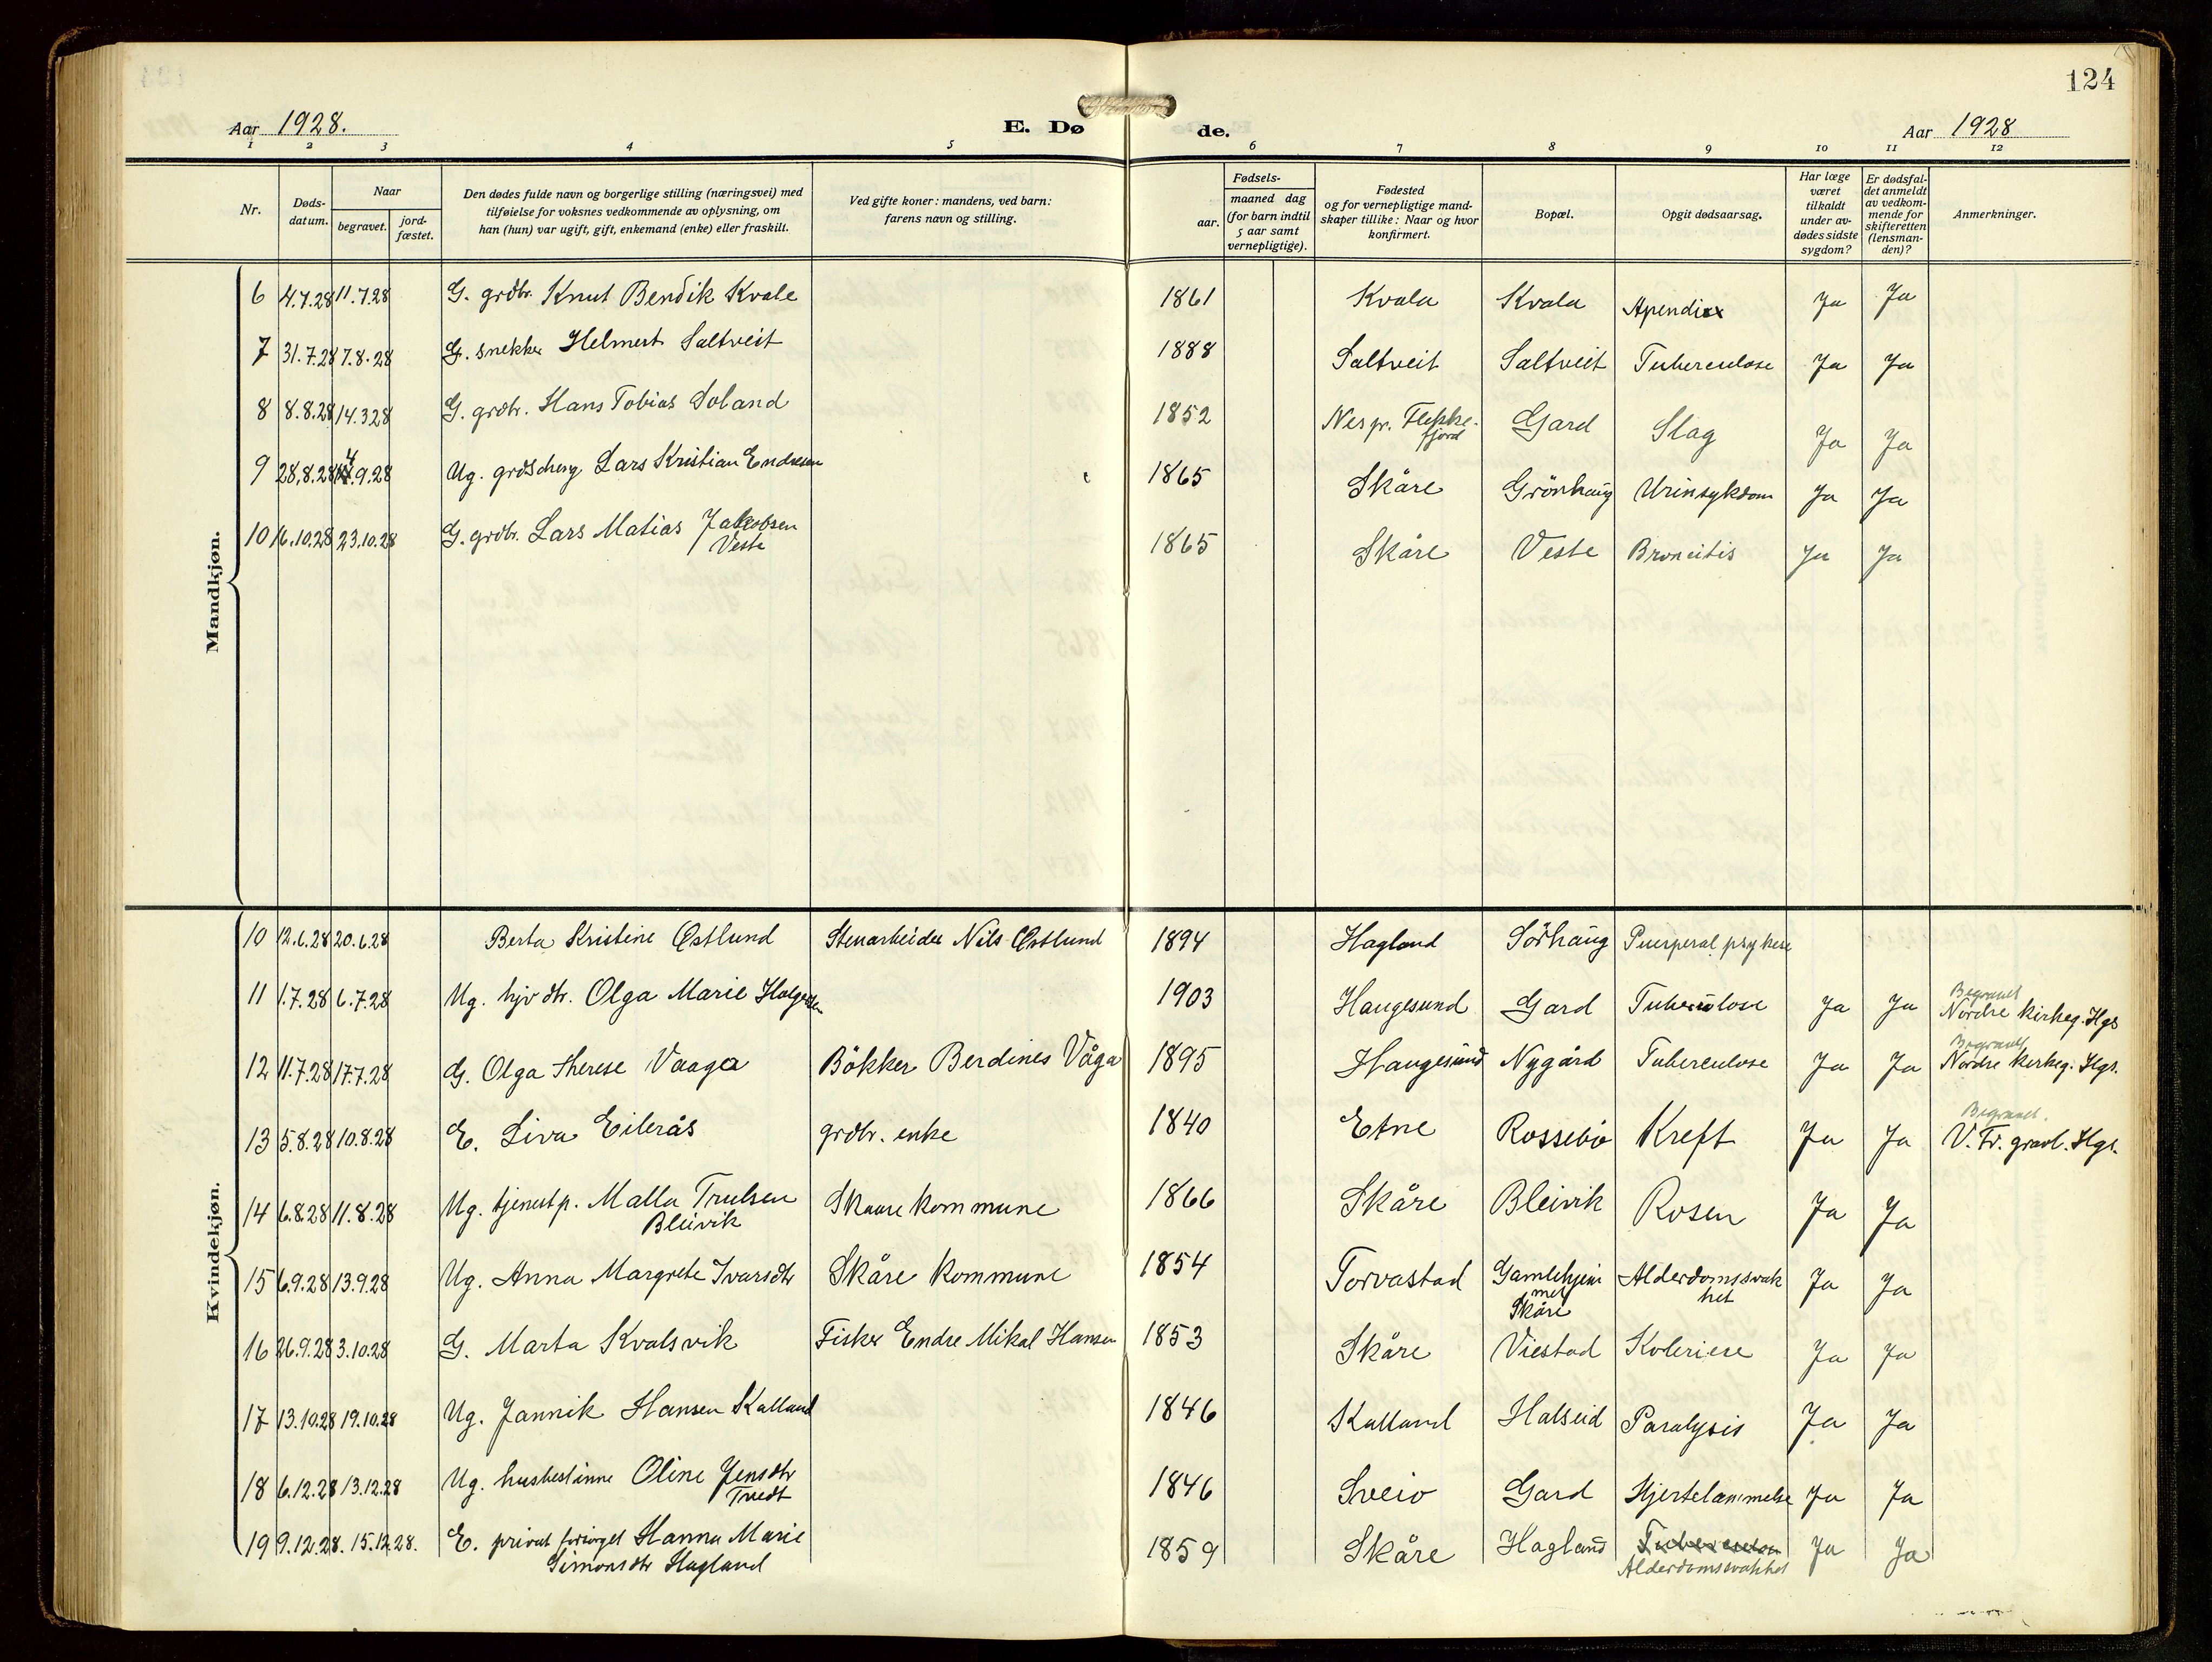 124
Aar 1928. E. Dø de. Aar 1928
1 2 3 4 5 6 7 8 9 10 11 12
Nr. Døds-datum. Naar begravet. jord-fæstet. Den dødes fulde navn og borgerlige stilling (næringsvei) med tilføielse for voksnes vedkommende av oplysning, om han (hun) var ugift, gift, enkemand (enke) eller fraskilt. Ved gifte koner: mandens, ved barn: farens navn og stilling. Fødsels- aar. maaned dag (for barn indtil 5 aar samt vernepligtige). Fødested og for vernepligtige mand-skaper tillike: Naar og hvor konfirmert. Bopæl. Opgit dødsaarsag. Har læge været tilkaldt under av-dødes sidste sygdom? Er dødsfal-det anmeldt av vedkom-mende for skifteretten (lensman-den)? Anmerkninger.
Mandkjøn.
6 4.7.28 11.7.28 G. grdbr. Knut Bendik Kvale 1861 Kvala Kvala Apendix Ja Ja
7 31.7.28 7.8.28 G. snekker Helmert Saltveit 1888 Saltveit Saltveit Tuberculose Ja Ja
8 8.8.28 14.328 G. grdbr. Hans Tobias Soland 1852 Nes pr. Flekke-fjord Gard Slag Ja Ja
9 28.8.28 4.9.28 Ug. Lars Kristian Endresen 1865 Skåre Grönhaug Urinsykdom Ja Ja
10 16.10.28 23.10.28 G. grdbr. Lars Matias Jakobsen
Veste 1865 Skåre Veste Broncitis Ja Ja
Kvindekjøn.
10 12.6.28 20.6.28 Berta Kristine Østlund Stenarbeider Nils Østlund 1894 Hagland Sörhaug Puerperal psykose
11 1.7.28 6.7.28 Ug. hjv dtr. Olga Marie Holgersen 1903 Haugesund Gard Tuberculose Ja Ja Begravet
Nordre kirkeg. Hgs
12 11.7.28 17.7.28 G. Olga Therese Vaaga Bökker Berdines Våga 1895 Haugesund Nygård Tuberculose Ja Ja Begravet
Nordre kirkeg. Hgs.
13 5.8.28 10.8.28 E. Siva Eilerås grdbr. enke 1840 Etne Rossebö Kreft Ja Ja Begravet.
V. Fr. gravl. Hgs.
14 6.8.28 11.8.28 Ug. tjenestp. Malla Trulsen
Bleivik Skaare kommune 1866 Skåre Bleivik Rosen Ja Ja
15 6.9.28 13.9.28 Ug. Anna Margrete Ivarsdtr Skåre Kommune 1854 Torvastad Gamlehjem
met
Skåre Alderdomssvak
het Ja Ja
16 26.9.28 3.10.28 G. Marta Kvalsvik Fisker Endre Mikal Hansen 1853 Skåre Viestad Koleriese Ja Ja
17 13.10.28 19.10.28 Ug. Jannik Hansen Kalland 1846 Kalland Halseid Paralysis Ja Ja
18 6.12.28 13.12.28 Ug. husbestinne Oline Jensdtr
Tvedt 1846 Sveio Gard Hjertelammelse Ja Ja
19 9.12.28. 15.12.28. E. privat forsörget Hanna Marie
Simonsdtr Hagland 1859 Skåre Hagland Tuberculose Ja Ja
Alderdomssvakhet